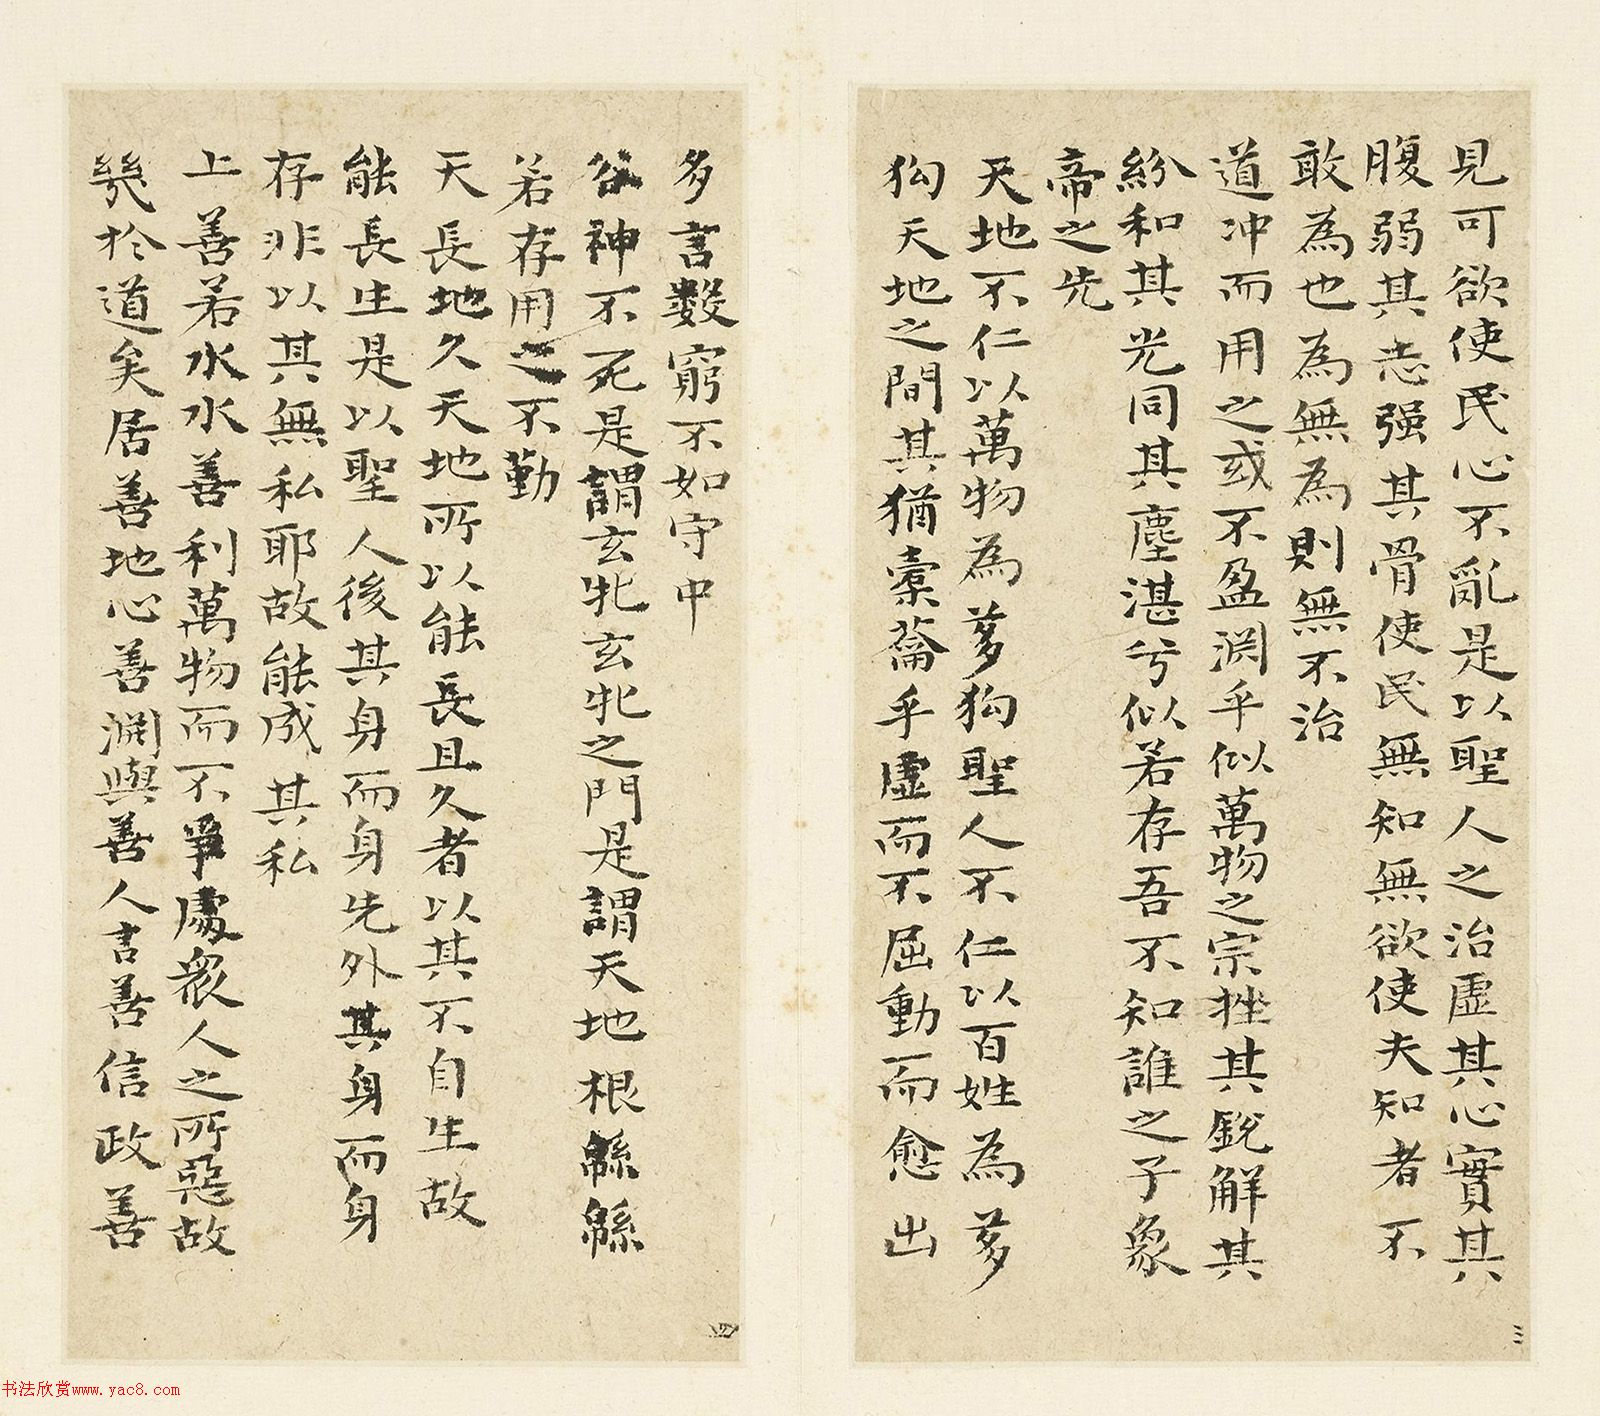 見可欲使民心不亂是以聖人之治虛其心實其
腹弱其志强其骨使民無知無欲使夫知者不
敢為也為無為則無不治
道冲而用之或不盈渊乎似萬物之宗挫其銳解其
紛和其光同其塵湛兮似若存吾不知誰之子象
帝之先
天地不仁以萬物為芻狗聖人不仁以百姓為芻
狗天地之間其猶橐籥乎虛而不屈動而愈出
三
多言數窮不如守中
谷神不死是謂玄牝玄牝之門是謂天地根緜緜
若存用之不勤
天長地久天地所以能長且久者以其不自生故
能長生是以聖人後其身而身先外其身而身
存非以其無私耶故能成其私
上善若水水善利萬物而不爭處衆人之所惡故
幾於道矣居善地心善渊與善人言善信政善
四
书法欣赏www.yac8.com